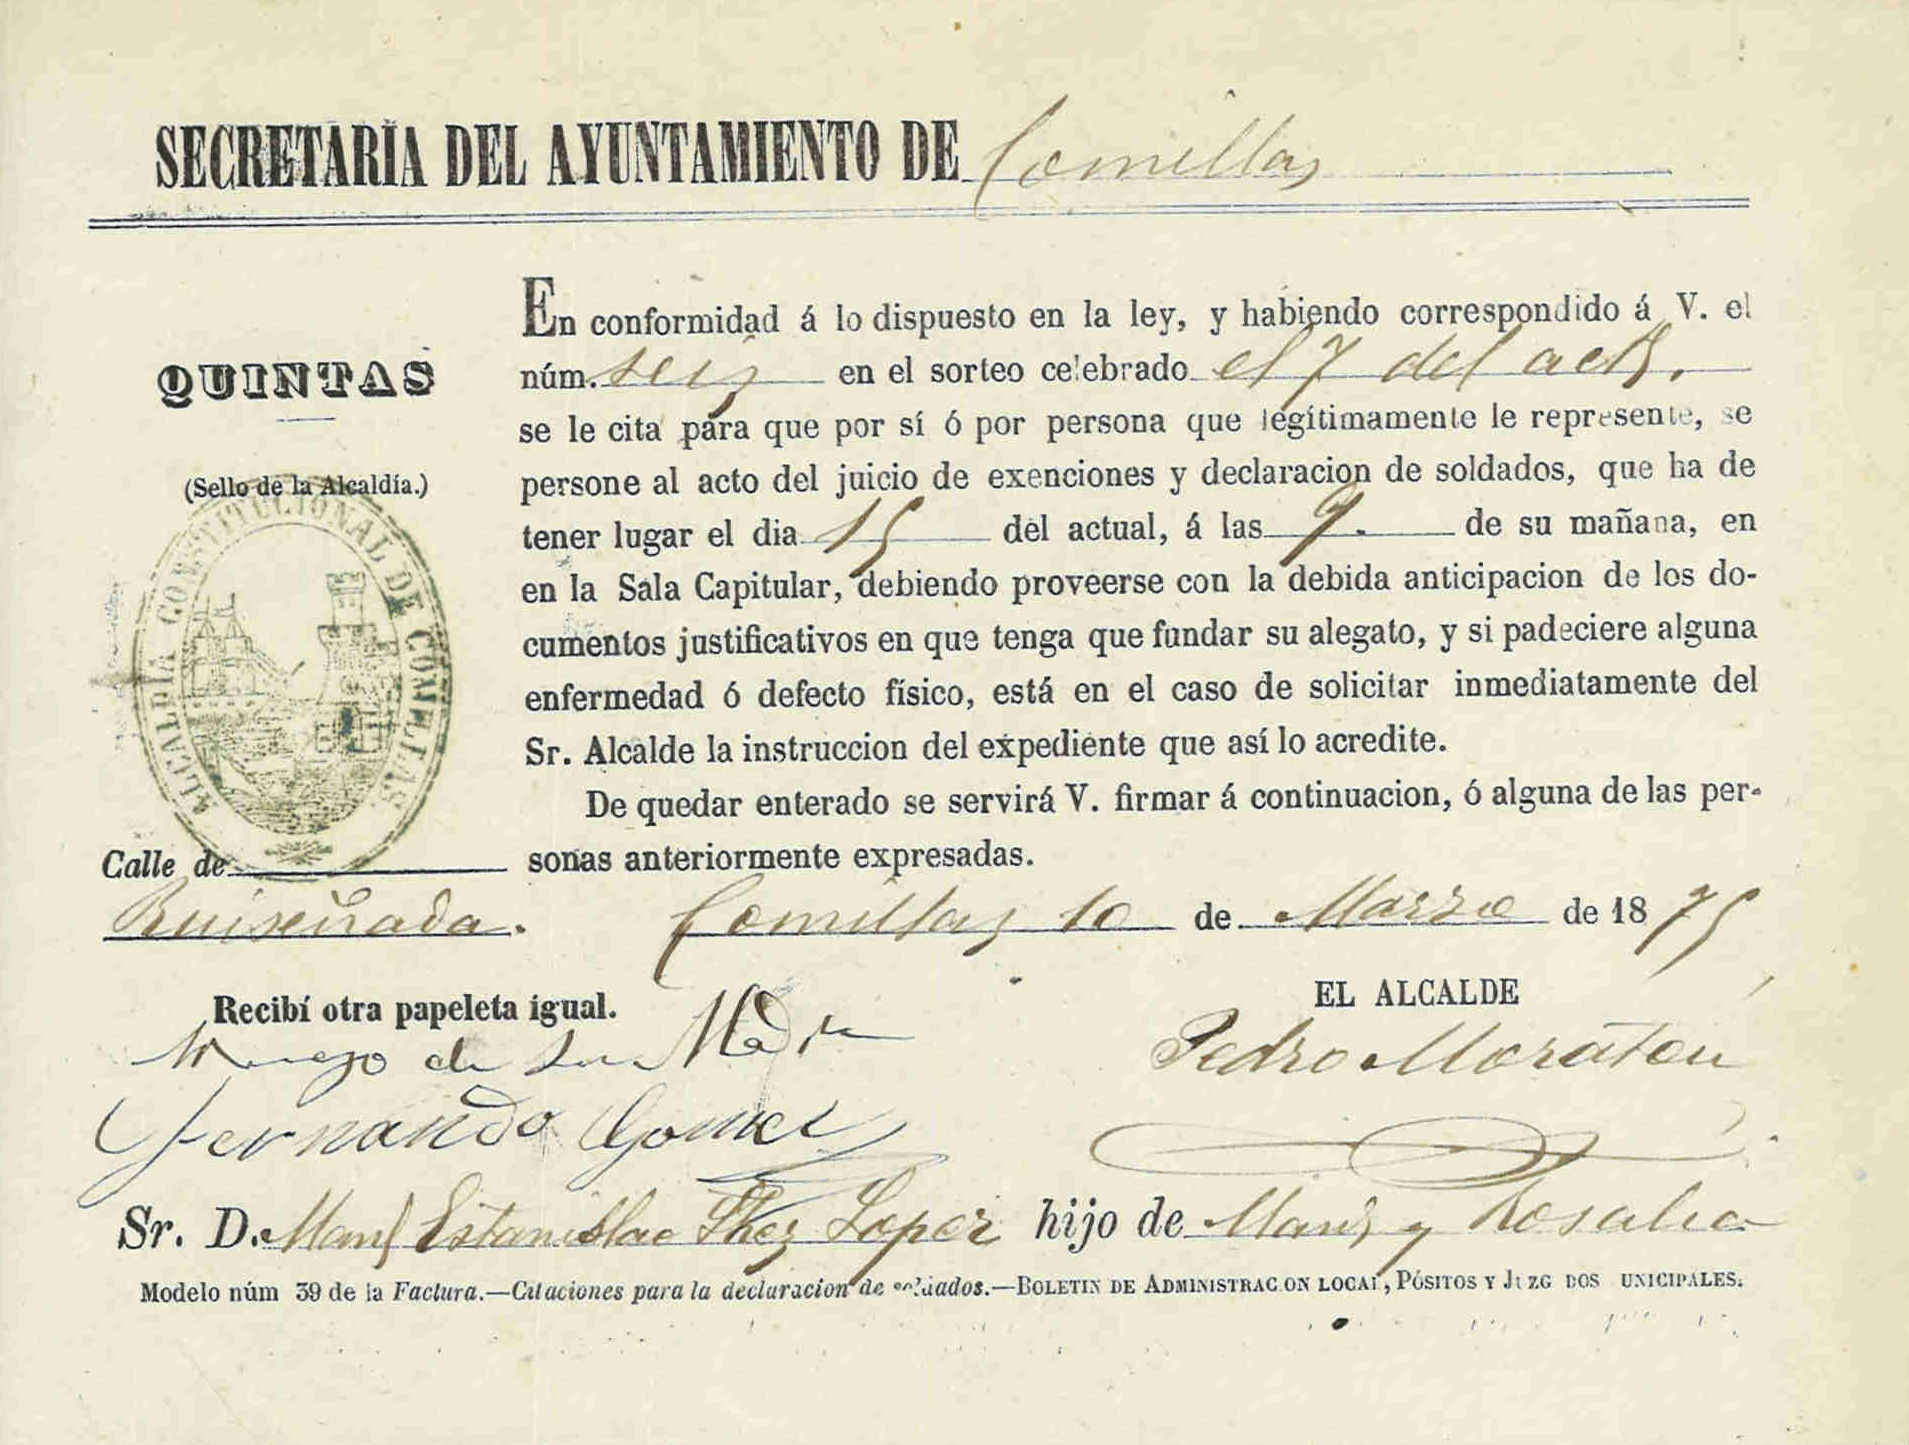 SECRETARÍA DEL AYUNTAMIENTO DE Comillas
QUINTAS
(Sello de la Alcaldía.)
ALCALDIA CONSTITUCIONAL DE COMILLAS
Calle de
Ruiseñada.
En conformidad á lo dispuesto en la ley, y habiendo correspondido á V. el
núm. seis en el sorteo celebrado el 7 del actl.
se le cita para que por sí ó por persona que legítimamente le represente, se
persone al acto del juicio de exenciones y declaracion de soldados, que ha de
tener lugar el dia 15 del actual, á las 9. de su mañana, en
en la Sala Capitular, debiendo proveerse con la debida anticipacion de los do-
cumentos justificativos en que tenga que fundar su alegato, y si padeciere alguna
enfermedad ó defecto físico, está en el caso de solicitar inmediatamente del
Sr. Alcalde la instruccion del expediente que así lo acredite.
De quedar enterado se servirá V. firmar á continuacion, ó alguna de las per-
sonas anteriormente expresadas.
Comillas 10 de Marzo de 1875
Recibí otra papeleta igual.
EL ALCALDE
ruego de su Madre
Pedro Moratón
Fernando Gomez
Sr. D. Manl Estanislao Shez Lopez hijo de Manl y Rosalia
Modelo núm 39 de la Factura.—Citaciones para la declaracion de soldados.—BOLETIN DE ADMINISTRACION LOCAL, PÓSITOS Y JUZGADOS MUNICIPALES.